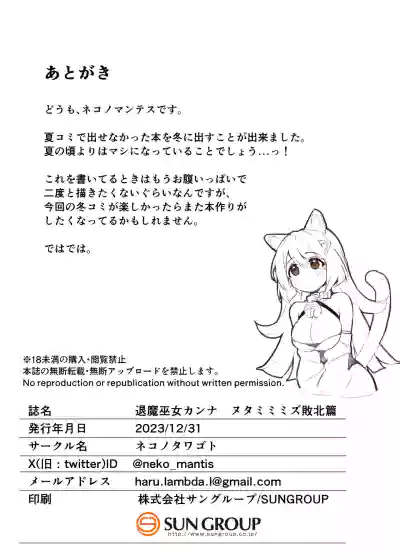 あとがき
どうも、ネコノマンテスです。
夏コミで出せなかった本を冬に出すことが出来ました。
夏の頃よりはマシになっていることでしょう…っ!
これを書いてるときはもうお腹いっぱいで
二度と描きたくないぐらいなんですが、
今回の冬コミが楽しかったらまた本作りが
したくなってるかもしれません。
ではでは。
※18未満の購入・閲覧禁止
本誌の無断転載・無断アップロードを禁止します。
No reproduction or republication without written permission.
誌名 退魔巫女カンナ ヌタミミミズ敗北篇
発行年月日 2023/12/31
サークル名 ネコノタワゴト
X(旧:twitter)ID @neko_mantis
メールアドレス haru.lambda.l@gmail.com
印刷 株式会社サングループ/SUNGROUP
SUN GROUP
http://www.sungroup.co.jp/